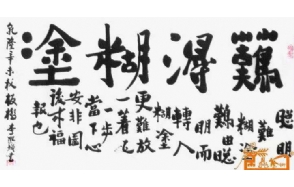 難得糊塗
聰明
難糊塗
難由聰
明而
轉入
糊塗
更難放
一著退
一步
當下心
安非圖
後來福
報也
乾隆辛未秋板橋